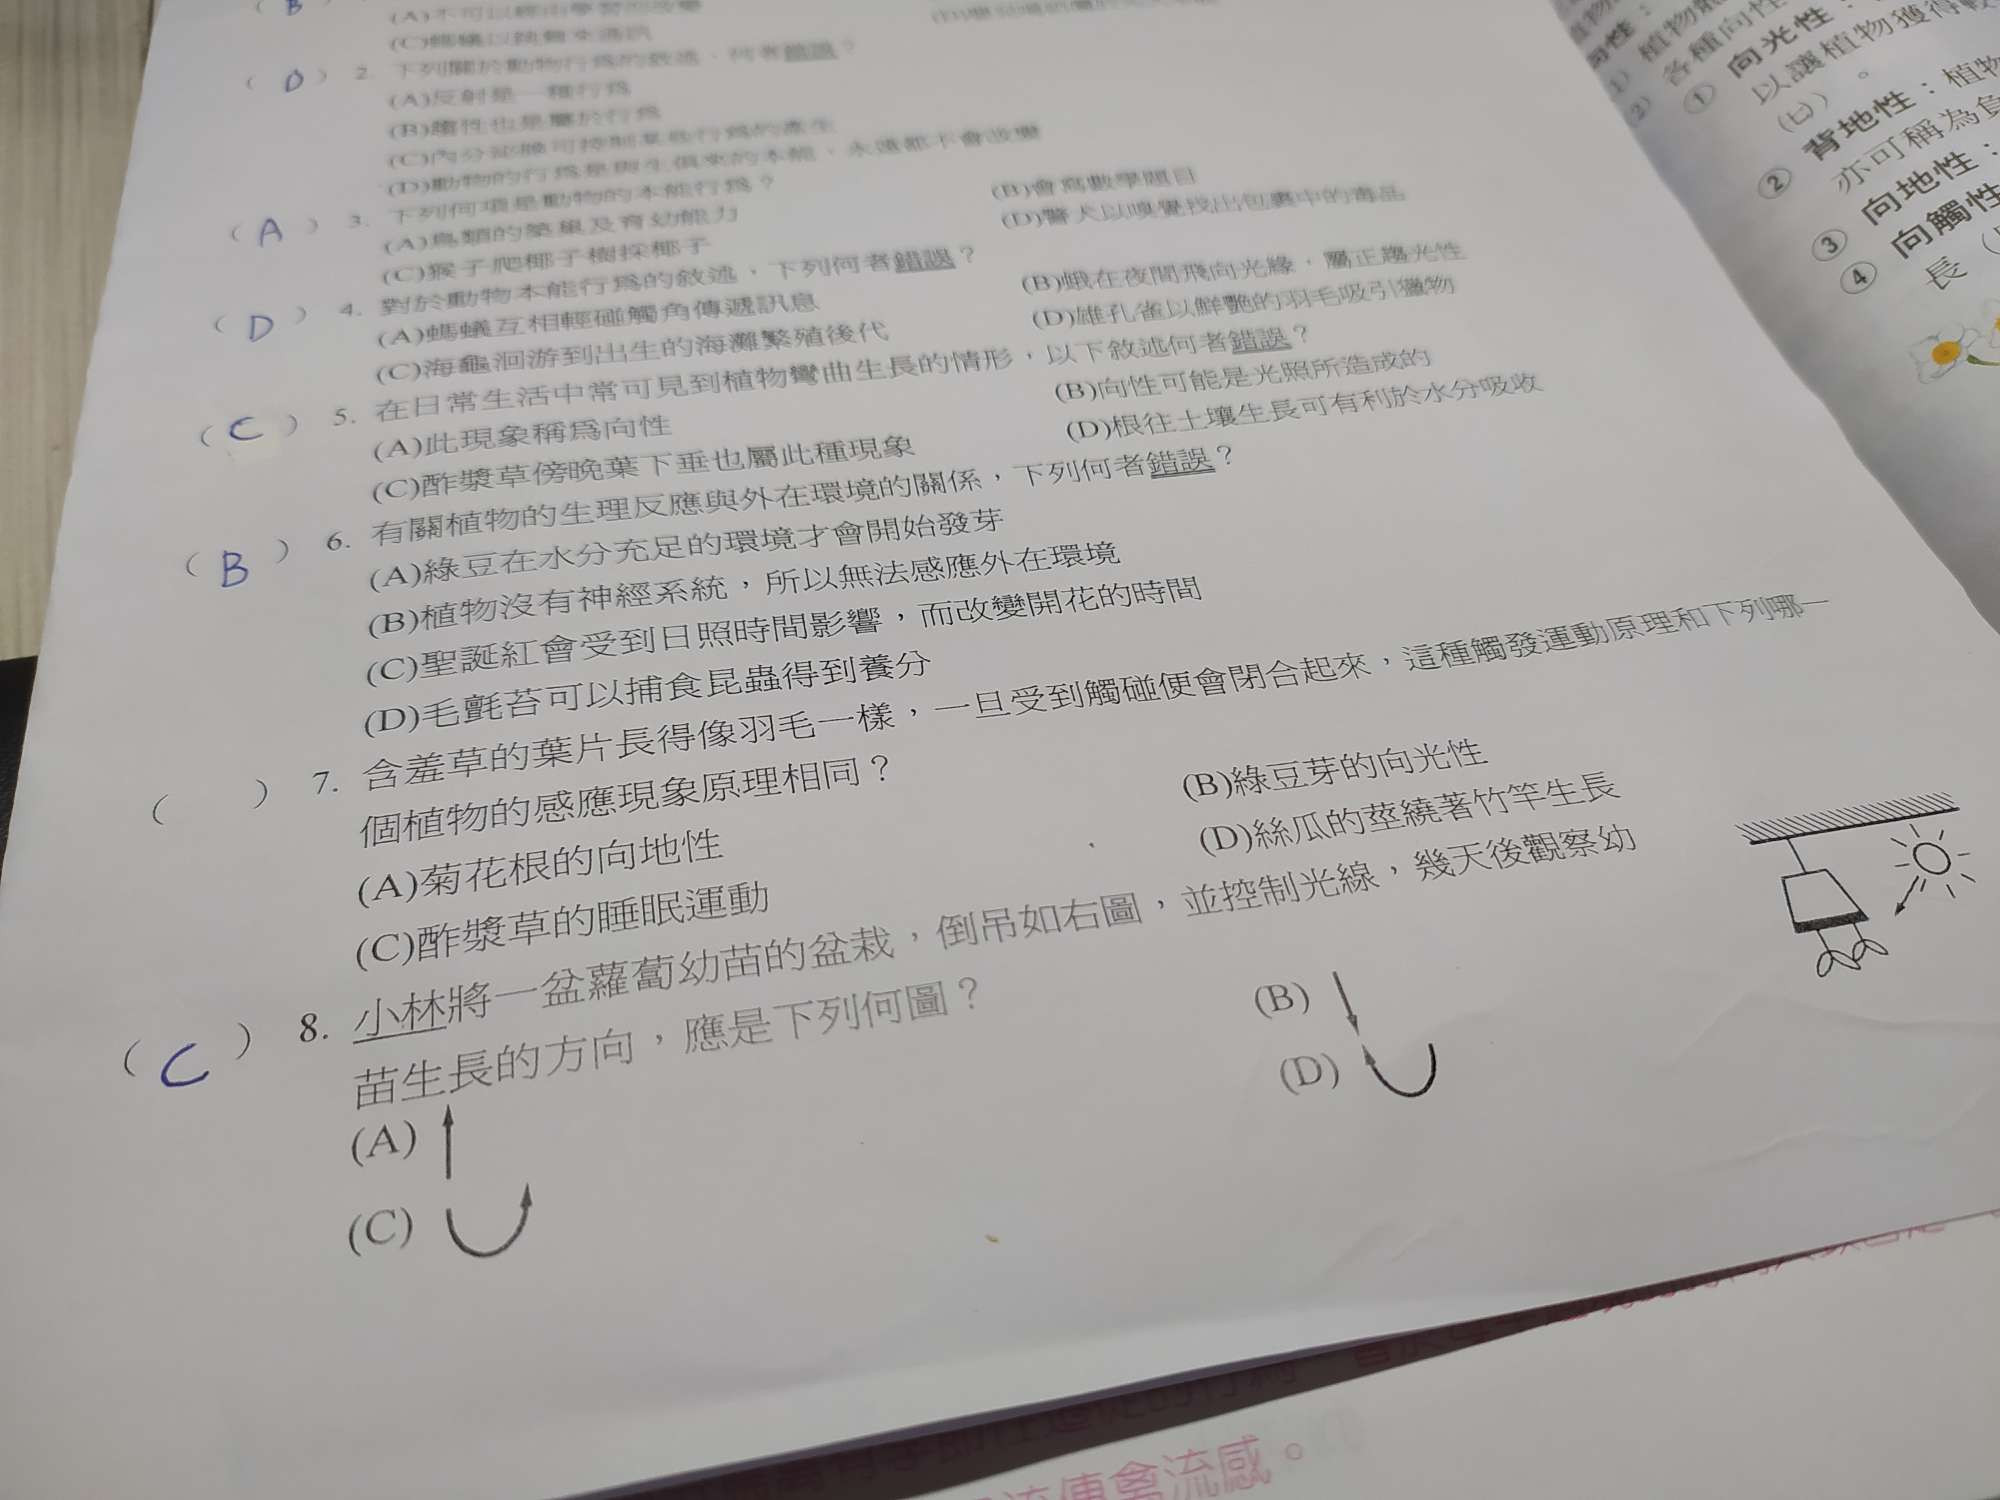 ( B )
( D ) 2. 下列關於動物行為的敘述,何者錯誤?
(A)反射是一種行為
(B)趨性也是屬於行為
(C)內分泌腺可控制某些行為的產生
(D)動物的行為是與生俱來的本能,永遠都不會改變
( A ) 3. 下列何項是動物的本能行為?
(A)鳥類的築巢及育幼能力 (B)會寫數學題目
(C)猴子爬椰子樹採椰子 (D)警犬以嗅覺找出包裹中的毒品
( D ) 4. 對於動物本能行為的敘述,下列何者錯誤?
(A)螞蟻互相輕碰觸角傳遞訊息 (B)蛾在夜間飛向光緣,屬正趨光性
(C)海龜洄游到出生的海灘繁殖後代 (D)雄孔雀以鮮艷的羽毛吸引獵物
( C ) 5. 在日常生活中常可見到植物彎曲生長的情形,以下敘述何者錯誤?
(A)此現象稱為向性 (B)向性可能是光照所造成的
(C)酢漿草傍晚葉下垂也屬此種現象 (D)根往土壤生長可有利於水分吸收
( B ) 6. 有關植物的生理反應與外在環境的關係,下列何者錯誤?
(A)綠豆在水分充足的環境才會開始發芽
(B)植物沒有神經系統,所以無法感應外在環境
(C)聖誕紅會受到日照時間影響,而改變開花的時間
(D)毛氈苔可以捕食昆蟲得到養分
( ) 7. 含羞草的葉片長得像羽毛一樣,一旦受到觸碰便會閉合起來,這種觸發運動原理和下列哪一
個植物的感應現象原理相同?
(A)菊花根的向地性 (B)綠豆芽的向光性
(C)酢漿草的睡眠運動 (D)絲瓜的莖繞著竹竿生長
( C ) 8. 小林將一盆蘿蔔幼苗的盆栽,倒吊如右圖,並控制光線,幾天後觀察幼
苗生長的方向,應是下列何圖?
(A) (B)
(C) (D)
各種向性
① 向光性:
以讓植物獲得較
② 背地性:植物
亦可稱為負
③ 向地性:
④ 向觸性
長
流傳禽流感。